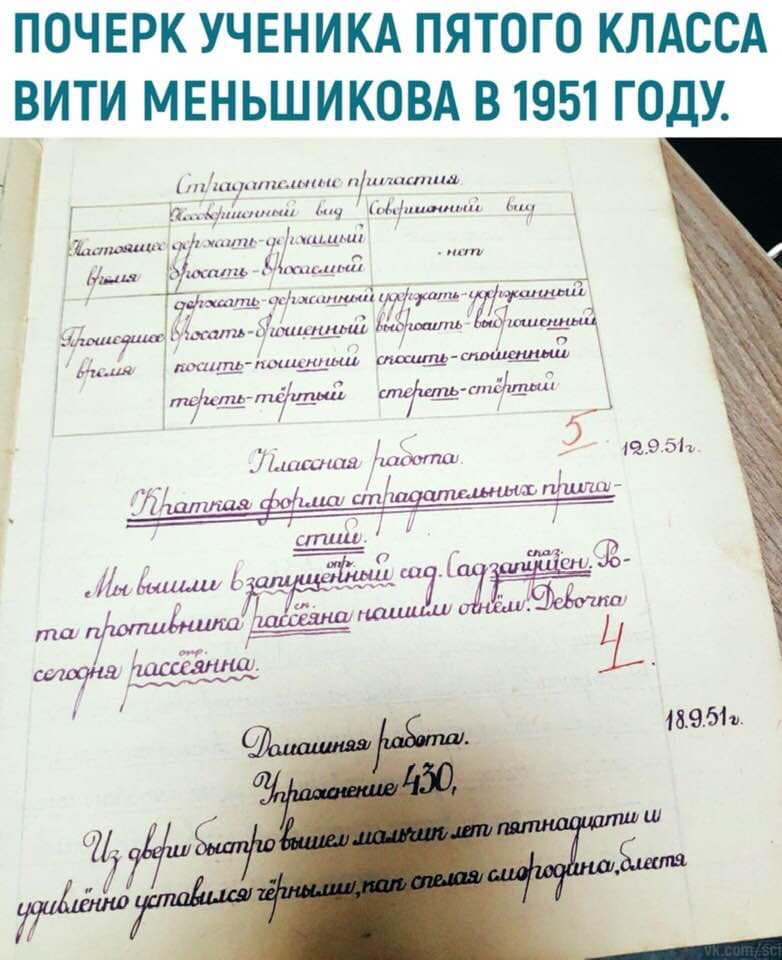 ПОЧЕРК УЧЕНИКА ПЯТОГО КЛАССА
ВИТИ МЕНЬШИКОВА В 1951 ГОДУ.
Страдательные причастия.
Несовершенный вид Совершенный вид
Настоящее время
держать-держимый
бросать-бросаемый
-нет
Прошедшее время
держать-держанный удержать-удержанный
бросать-брошенный выбросить-выброшенный
косить-кошенный скосить-скошенный
тереть-тёртый стереть-стёртый
5
Классная работа. 12.9.51г.
Краткая форма страдательных прича-
стий.
опр. сказ.
Мы вышли в запущенный сад. Сад запущен. Ро-
ск.
та противника рассеяна нашим огнём. Девочка
опр.
сегодня рассеянна.
4
Домашняя работа. 18.9.51г.
Упражнение 430,
Из двери быстро вышел мальчик лет пятнадцати и
удивлённо уставился чёрными, как спелая смородина, блестя
vk.com/sci